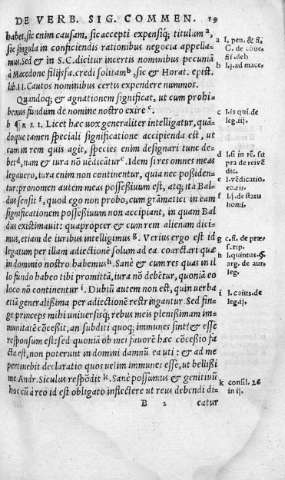 DE VERB. SIG. COMMEN. 19
habet, sic enim causam, sic accepti expensiq; titulum a,
sic singula in conficiendis rationibus negocia appella-
mus. Sed & in S.C. dicitur incertis nominibus pecuniã
à Macedone filijsfa. credi solitam b, sic & Horat. epist.
lib.ij. Cautos nominibus certis expendere nummos.
Quandoq; & agnationem significat, ut cum prohi-
benus fundum de nomine nostro exire c.
Licet hæc uox generaliter intelligatur, quã-
doque tamen speciali significatione accipienda est, ut
cum in rem quis agit, species enim designari tunc de-
bet d, nam & iura nõ uẽdicãtur e. Idem si res omnes meas
legauero, iura enim non continentur, quia nec possidẽn-
tur: pronomen autem meus possessiuum est, atq; ita Bal-
dus sensit f, quod ego non probo, cum grãmatici in eam
significationem possessiuum non accipiant, in quam Bal
dus existimauit: quapropter & cum rem alienam dici-
mus, etiam de iuribus intelligimus g. Verius ergo est id
legatum per illam adiectionem solum ad ea coarctari quæ
in dominio nostro habemus h. Sanè & cum res quas in il
lo fundo habeo tibi promittã, iura nõ debẽtur, quoniã eo
loco nõ continentur i. Dubiũ autem non est, quin uerba
etiã generalißima per adiectionẽ restringantur. Sed fin-
ge princeps mihi uniuersisq; rebus meis plenißimam im-
munitatẽ cõceßit, an subditi quoq; immunes sint? & esse
responsum est: sed quoniã ob mei fauorẽ hæc cõceßio fa
cta est, non poterunt in domini damnũ ea uti: & ad me
pertinebit declaratio quos uelim immunes esse, ut bellißi
me Andr. Siculus respõdit k. Sanè possumus & genitiuũ
hoc cũ à reo id est obligato inflectere ut reus debendi di-
B 2 catur
a l. pen. & fi.
C. de conue
fisc. deb
b l.j. ad mace
c l. is qui. de
lega.ij.
e l. uẽdicatio
f l.j. de statu
homi.
h l. quintus. §
arg. de aur.
leg.
k consil. 26
in ij.